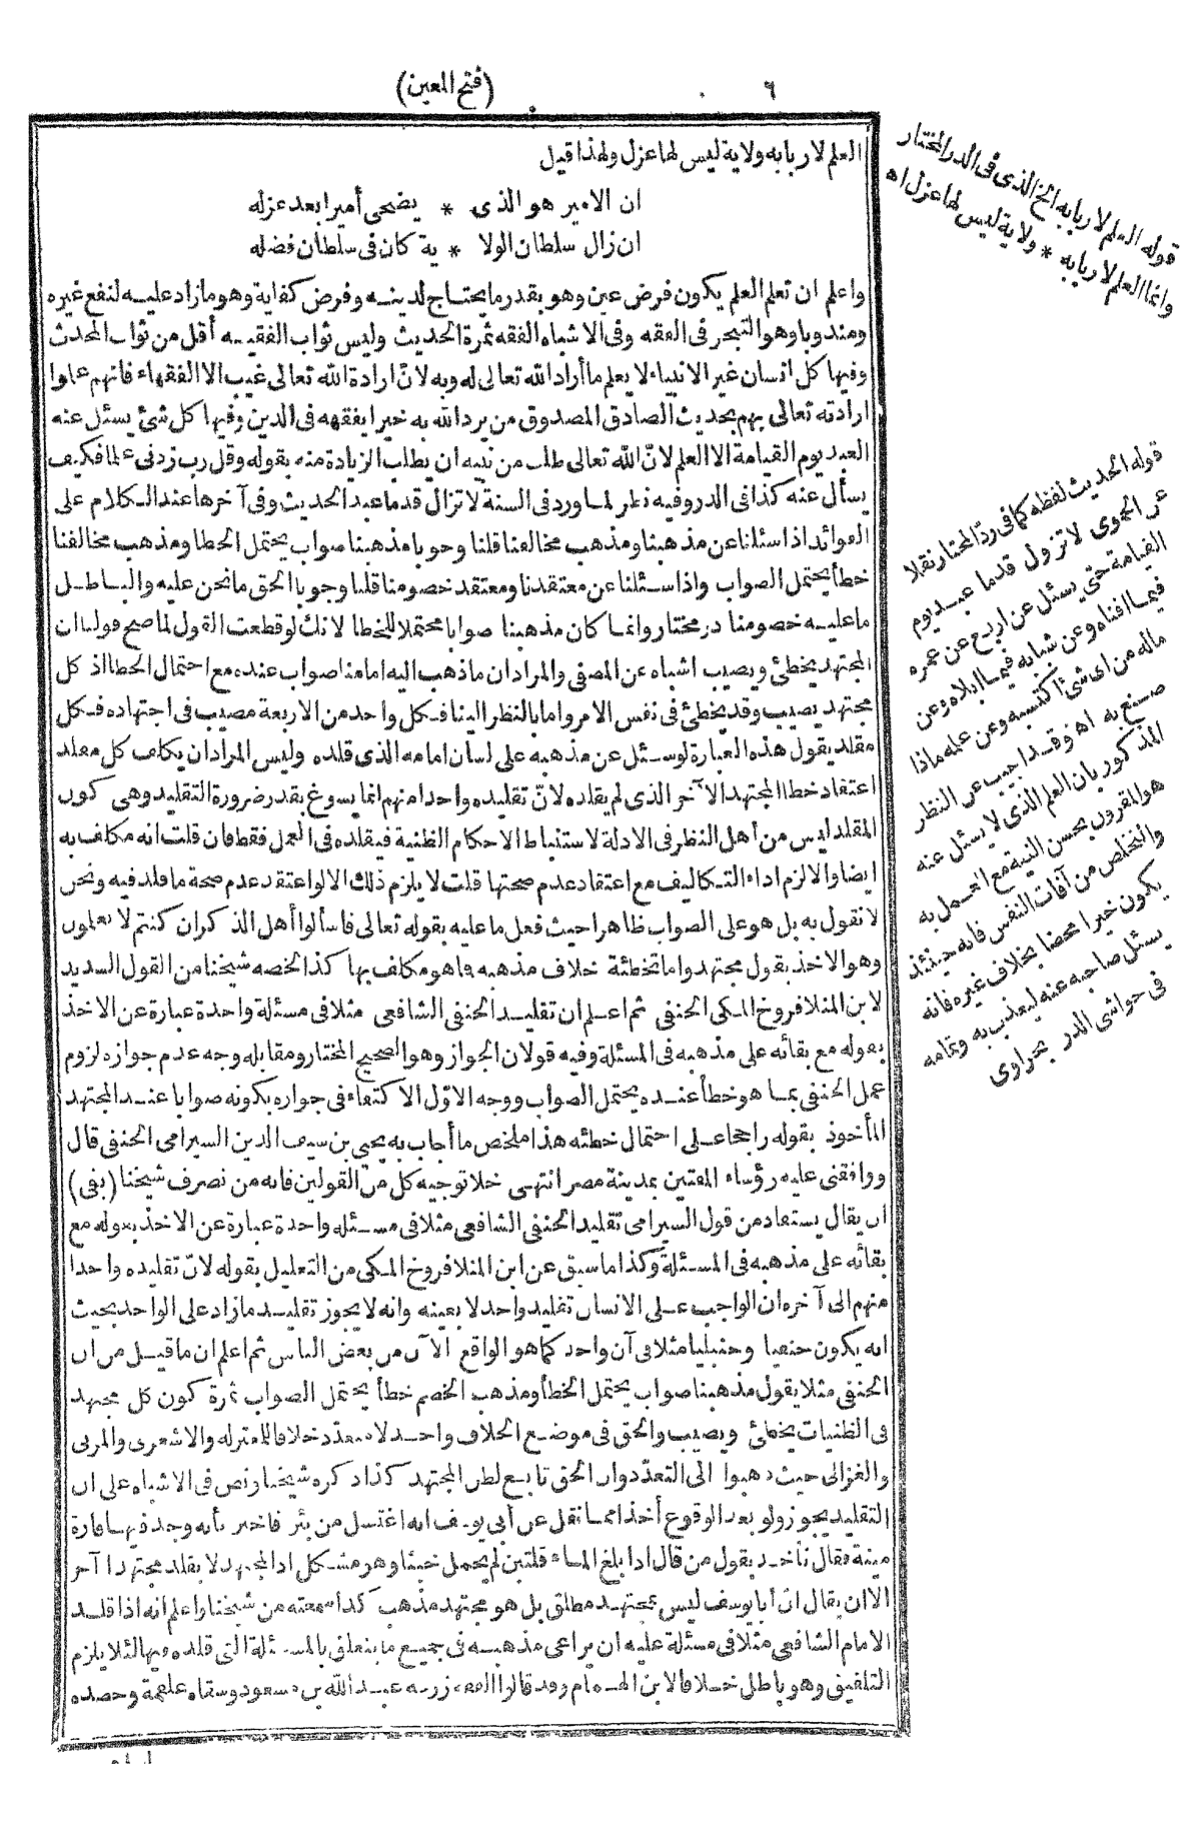 ٦
(فتح المعين)
العلم لاربابه ولاية ليس لها عزل ولهذا قيل
ان الامير هو الذى * يضحى أميرا بعد عزله
ان زال سلطان الولا * ية كان فى سلطان فضله
واعلم ان تعلم العلم يكون فرض عين وهو بقدر ما يحتاج لدينه وفرض كفاية وهو مازاد عليه لنفع غيره
ومندوبا وهو التبحر فى الفقه وفى الاشباه الفقه ثمرة الحديث وليس ثواب الفقيه أقل من ثواب المحدث
وفيها كل انسان غير الانبياء لا يعلم ما أراد الله تعالى له وبه لانّ ارادة الله تعالى غيب الا الفقهاء فانهم علموا
ارادته تعالى بهم بحديث الصادق المصدوق من يرد الله به خيرا يفقهه فى الدين وفيها كل شئ يسئل عنه
العبد يوم القيامة الا العلم لانّ الله تعالى طلب من نبيه ان يطلب الزيادة منه بقوله وقل رب زدنى علما فكيف
يسأل عنه كذا فى الدر وفيه نظر لما ورد فى السنة لا تزال قدما عبد الحديث وفى آخرها عند الكلام على
الفوائد اذا سئلنا عن مذهبنا ومذهب مخالفنا قلنا وجوبا مذهبنا صواب يحتمل الخطا ومذهب مخالفنا
خطأ يحتمل الصواب واذا سئلنا عن معتقدنا ومعتقد خصومنا قلنا وجوبا الحق ما نحن عليه والباطل
ما عليه خصومنا در مختار وانما كان مذهبنا صوابا محتملا للخطا لانك لو قطعت القول لما صح قولنا ان
المجتهد يخطئ ويصيب اشباه عن المصفى والمراد ان ما ذهب اليه امامنا صواب عنده مع احتمال الخطا اذ كل
مجتهد يصيب وقد يخطئ فى نفس الامر واما بالنظر الينا فكل واحد من الاربعة مصيب فى اجتهاده فكل
مقلد يقول هذه العبارة لو سئل عن مذهبه على لسان امامه الذى قلده وليس المراد ان يكلف كل مقلد
اعتقاد خطا المجتهد الآخر الذى لم يقلده لانّ تقليده واحدا منهم انما يسوغ بقدر ضرورة التقليد وهى كون
المقلد ليس من أهل النظر فى الادلة لاستنباط الاحكام الظنية فيقلده فى العمل فقط فان قلت انه مكلف به
ايضا والا لزم اداء التكاليف مع اعتقاد عدم صحتها قلت لا يلزم ذلك الا لو اعتقد عدم صحة ما قلد فيه ونحن
لا نقول به بل هو على الصواب ظاهرا حيث فعل ما عليه بقوله تعالى فاسألوا أهل الذكر ان كنتم لا تعلمون
وهو الاخذ بقول مجتهد واما تخطئة خلاف مذهبه فاهو مكلف بها كذا لخصه شيخنا من القول السديد
لابن المنلا فروخ المكى الحنفى ثم اعلم ان تقليد الحنفى الشافعى مثلا فى مسئلة واحدة عبارة عن الاخذ
بقوله مع بقائه على مذهبه فى المسئلة وفيه قولان الجواز وهو الصحيح المختار ومقابله وجه عدم جوازه لزوم
عمل الحنفى بما هو خطأ عنده يحتمل الصواب ووجه الاوّل الاكتفاء فى جوازه بكونه صوابا عند المجتهد
المأخوذ بقوله راجحا على احتمال خطئه هذا ملخص ما أجاب به يحيى بن سيف الدين السيرامى الحنفى قال
ووافقنى عليه رؤساء المفتين بمدينة مصر انتهى خلا توجيه كل من القولين فانه من تصرف شيخنا (بقى)
ان يقال يستفاد من قول السيرامى تقليد الحنفى الشافعى مثلا فى مسئلة واحدة عبارة عن الاخذ بقوله مع
بقائه على مذهبه فى المسئلة وكذا ما سبق عن ابن المنلا فروخ المكى من التعليل بقوله لانّ تقليده واحدا
منهم الى آخره ان الواجب على الانسان تقليد واحد لا بعينه وانه لا يجوز تقليد مازاد على الواحد بحيث
انه يكون حنفيا وحنبليا مثلا فى آن واحد كما هو الواقع الآن من بعض الناس ثم اعلم ان ما قيل من ان
الحنفى مثلا يقول مذهبنا صواب يحتمل الخطأ ومذهب الخصم خطأ يحتمل الصواب ثمرة كون كل مجتهد
فى الظنيات يخطئ ويصيب والحق فى موضع الخلاف واحد لا متعدد خلافا للمعتزلة والاشعرى والمزنى
والغزالى حيث ذهبوا الى التعدّد وان الحق تابع لظن المجتهد كذا ذكره شيخنا ونص فى الاشباه على ان
التقليد يجوز ولو بعد الوقوع أخذا مما نقل عن أبى يوسف انه اغتسل من بئر فاخبر بأنه وجد فيها فارة
ميتة فقال نأخذ بقول من قال اذا بلغ الماء قلتين لم يحمل خبثا وهو مشكل اذ المجتهد لا يقلد مجتهدا آخر
الا ان يقال انّ أبا يوسف ليس بمجتهد مطلق بل هو مجتهد مذهب كذا سمعته من شيخنا واعلم انه اذا قلد
الامام الشافعى مثلا فى مسئلة عليه ان يراعى مذهبه فى جميع ما يتعلق بالمسئلة التى قلده فيها لئلا يلزم
التلفيق وهو باطل خلافا لابن الهمام وقد قالوا الفقه زرعه عبد الله بن مسعود وسقاه علقمة وحصده
قوله العلم لاربابه الخ الذى فى الدر المختار
وانما العلم لاربابه * ولاية ليس لها عزل اه
قوله الحديث لفظه كما فى ردّ المحتار نقلا
عن الحموى لا تزول قدما عبد يوم
القيامة حتى يسئل عن اربع عن عمره
فيما افناه وعن شبابه فيما ابلاه وعن
ماله من اى شئ اكتسبه وعن علمه ماذا
صنع به اه وقد اجيب عن النظر
المذكور بان العلم الذى لا يسئل عنه
هو المقرون بحسن النية مع العمل به
والتخلص من آفات النفس فانه حينئذ
يكون خيرا محضا بخلاف غيره فانه
يسئل صاحبه عنه ليعذب به وتمامه
فى حواشى الدر بحراوى